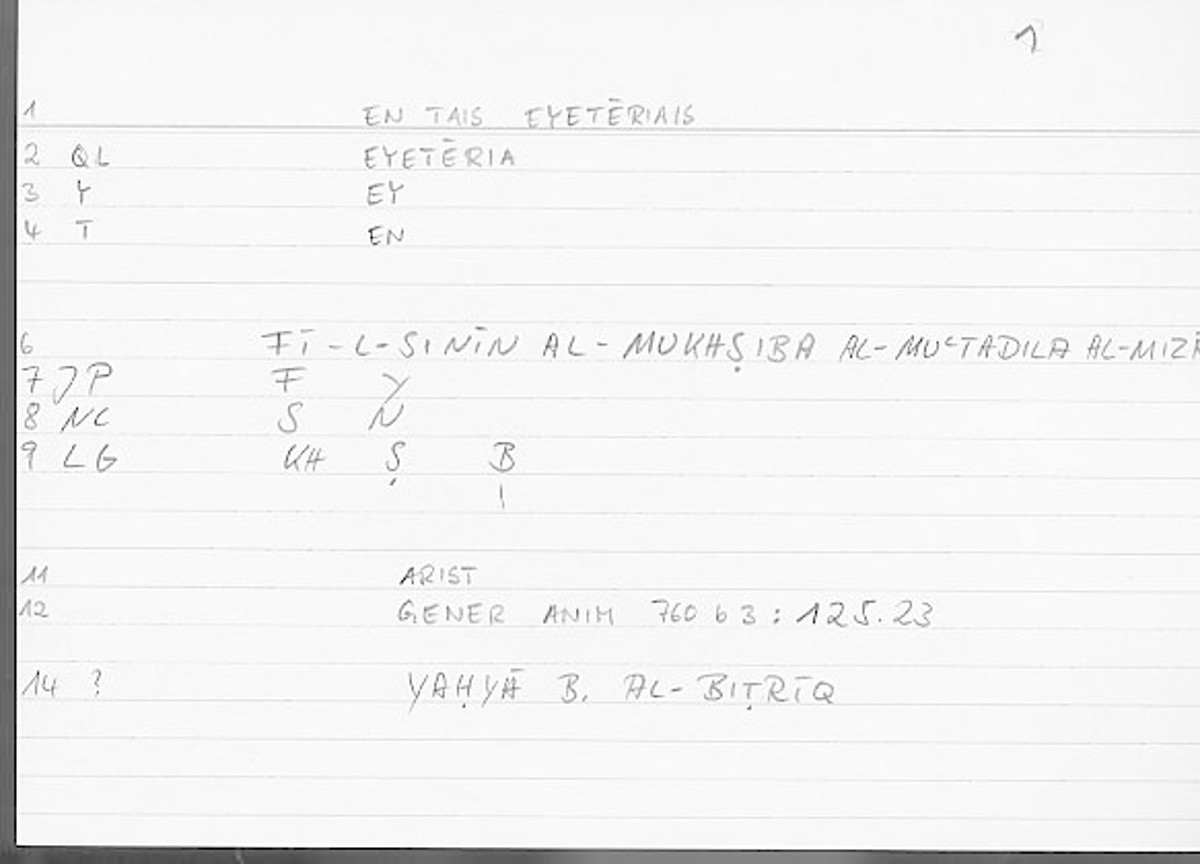 1
1 EN TAIS EYETĒRIAIS
2 QL EYETĒRIA
3 Y EY
4 T EN
6 FĪ-L-SINĪN AL-MUKHṢIBA AL-MUʿTADILA AL-MIZĀ
7 JP F Y
8 NC S N
9 LG KH Ṣ B
11 ARIST
12 GENER ANIM 760 b 3 : 125.23
14 ? YAḤYĀ B. AL-BIṬRĪQ